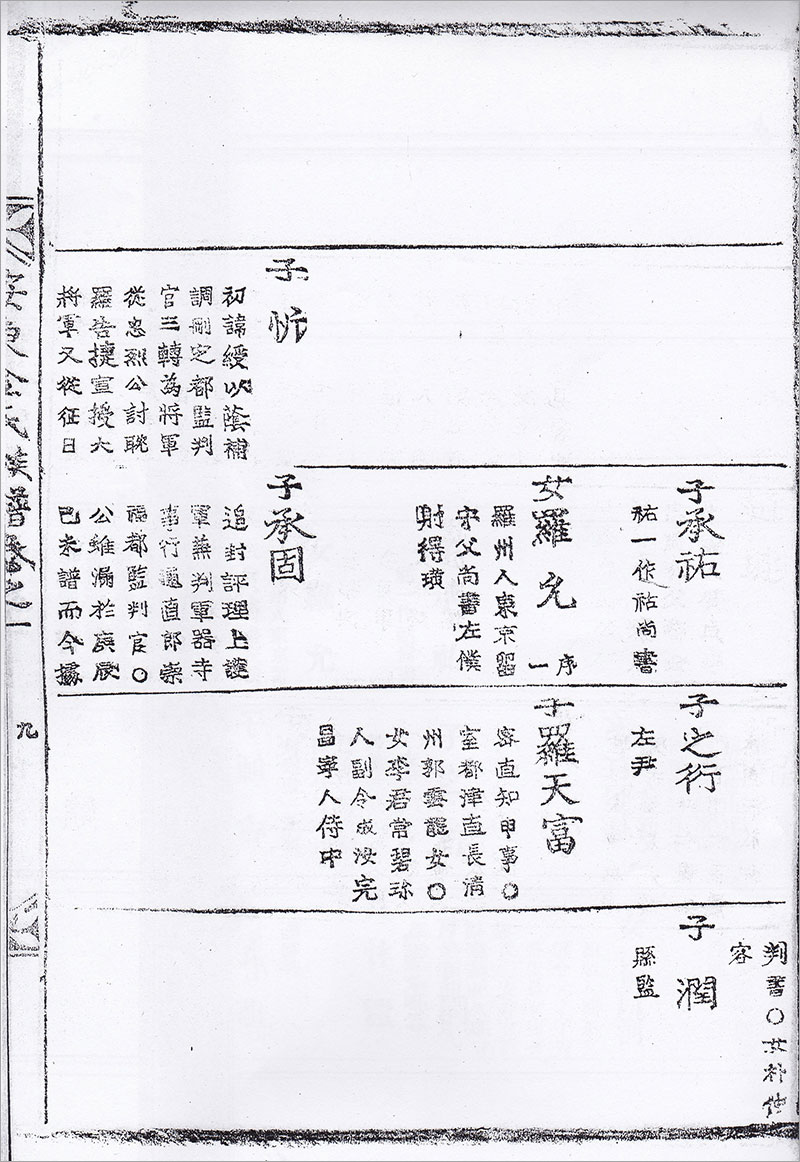 子忻
初諱綬以蔭補
調刪定都監判
官三轉爲將軍
從忠烈公討耽
羅告捷宣授大
將軍又從征日
子承祐
祐一作祜尚書
女羅允
序一
羅州人東京留
守父尚書左僕
射得璜
子承固
追封評理上護
軍兼判軍器寺
事行通直郎崇
福都監判官○
公雖漏於庚辰
己未譜而今據
子之衍
左尹
子羅天富
密直知申事○
室都津直長清
州郭雲龍女○
女李君常碧珍
人副令成汝完
昌寧人侍中
判書○女朴仲
容
子潤
縣監
安東金氏族譜卷之一
九